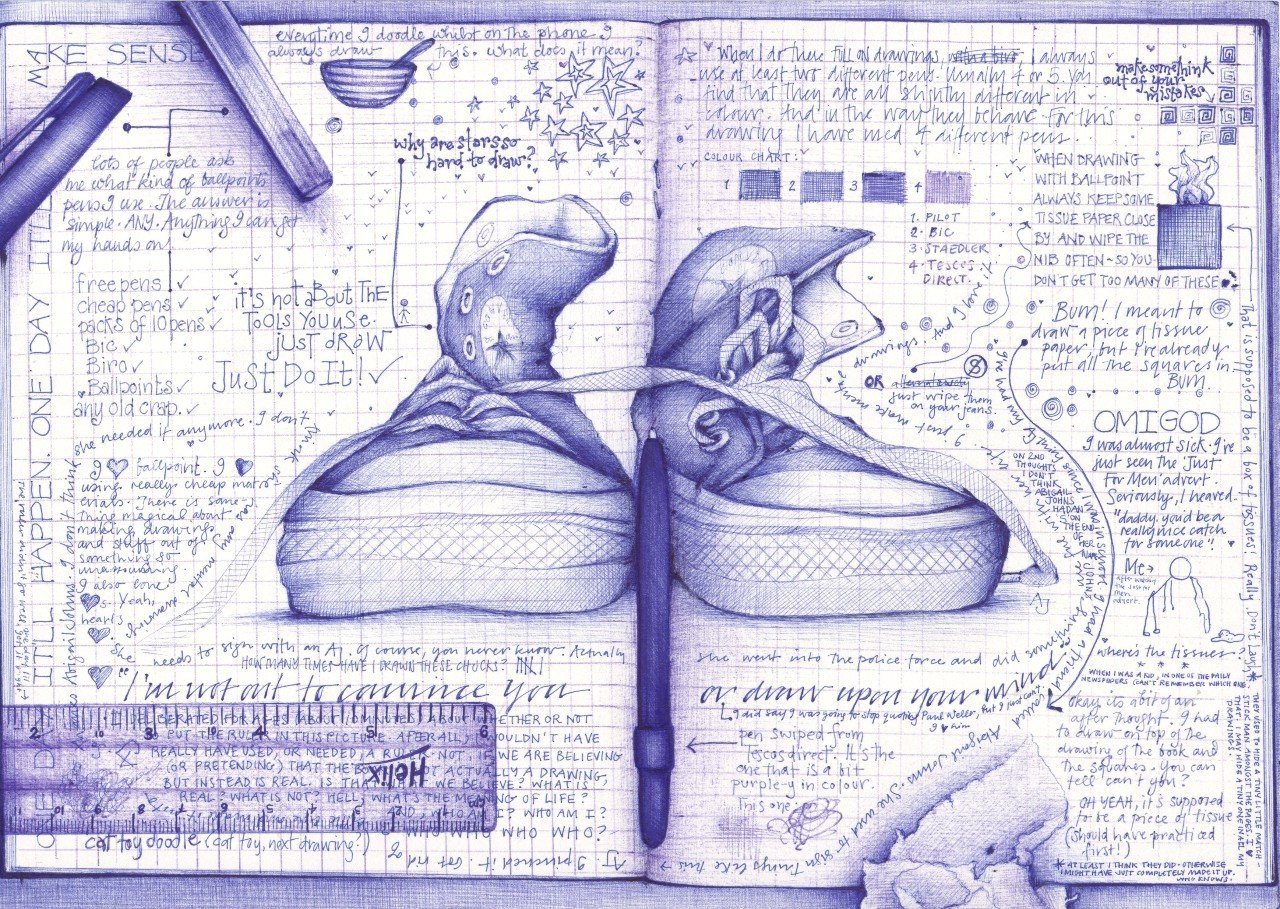 MAKE SENSE
ONE DAY IT'LL ALL MAKE SENSE
IT'LL HAPPEN. ONE DAY
everytime I doodle whilst on the phone I
always draw this. what does it mean?
why are stars so
hard to draw?
lots of people ask
me what kind of ballpoint
pens I use. The answer is
simple. ANY. Anything I can get
my hands on!
free pens
cheap pens
packs of 10 pens
Bic
Biro
Ballpoints
any old crap.
it's not about THE
TOOLS YOU USE.
JUST DRAW
JUST DO IT!
I ballpoint. I
using really cheap mat-
erials. There is some-
thing magical about
making drawings
and stuff out of
something so
unassuming.
I also love
s. Yeah,
hearts
she needed it anymore. I don't think she
needs to sign with an AJ. Of course, you never know. Actually
HOW MANY TIMES HAVE I DRAWN THESE CHUCKS?
I'm not out to convince you
I DELIBERATED FOR AGES (ABOUT 10 MINUTES) ABOUT WHETHER OR NOT
TO PUT THE RULER IN THIS PICTURE. AFTER ALL, I WOULDN'T HAVE
REALLY HAVE USED, OR NEEDED, A RULER. NOT IF WE ARE BELIEVING
(OR PRETENDING) THAT THE BOOK NOT ACTUALLY A DRAWING,
BUT INSTEAD IS REAL. IS THAT WHAT WE BELIEVE? WHAT IS
REAL? WHAT IS NOT? HELL, WHAT'S THE MEANING OF LIFE?
AND, WHO AM I? WHO AM I?
WHO WHO?
Helix
2 3 4 5 6
cat toy doodle (cat toy, next drawing.)
AJ. I pinched it. Get rid of
When I do these FULL ON drawings, with a biro, I always
use at least two different pens. Usually 4 or 5. You
find that they are all slightly different in
colour. And in the way they behave. For this
drawing I have used 4 different pens.
make something
out of your
mistakes
COLOUR CHART:
1 2 3 4
1. PILOT
2. BIC
3. STAEDLER
4. TESCOS
DIRECT.
WHEN DRAWING
WITH BALLPOINT
ALWAYS KEEP SOME
TISSUE PAPER CLOSE
BY AND WIPE THE
NIB OFTEN - SO YOU
DON'T GET TOO MANY OF THESE
Bum! I meant to
draw a piece of tissue
paper, but I've already
put all the squares in
Bum.
That is supposed to be a box of tissues! Really. Don't laugh
OR alternatively
just wipe them
on your jeans.
OMIGOD
I was almost sick. I've
just seen the Just
for Men advert.
Seriously, I heaved.
"daddy, you'd be a
really nice catch
for someone"!
Me
After watching
the Just for
men
advert.
where's the tissues?
ON 2ND
THOUGHTS
I DON'T
THINK
ABIGAIL
JOHNS
HAD AN
S ON THE END
OF HER
NAME
AJ
she went into the police force and did some
or draw upon your mind
I did say I was going to stop quoting Paul Weller, but I just can't
I him
pen swiped from
Tescos direct. It's the
one that is a bit
purple-y in colour.
This one
Things like this
Abigail Johns. She used to sign
WHEN I WAS A KID, IN ONE OF THE DAILY
NEWSPAPERS (CAN'T REMEMBER WHICH ONE,
THEY USED TO HIDE A TINY LITTLE MATCH-
STICK MAN AMONGST THE PAGES. I
THAT. I MAY HIDE A TINY ONE IN ALL MY
DRAWINGS
Okay, its a bit of an
after thought. I had
to draw on top of the
drawing of the book and
the squares. You can
tell can't you?
OH YEAH, it's supposed
to be a piece of tissue
(should have practiced
first!)
* AT LEAST I THINK THEY DID. OTHERWISE
I MIGHT HAVE JUST COMPLETELY MADE IT UP.
WHO KNOWS.